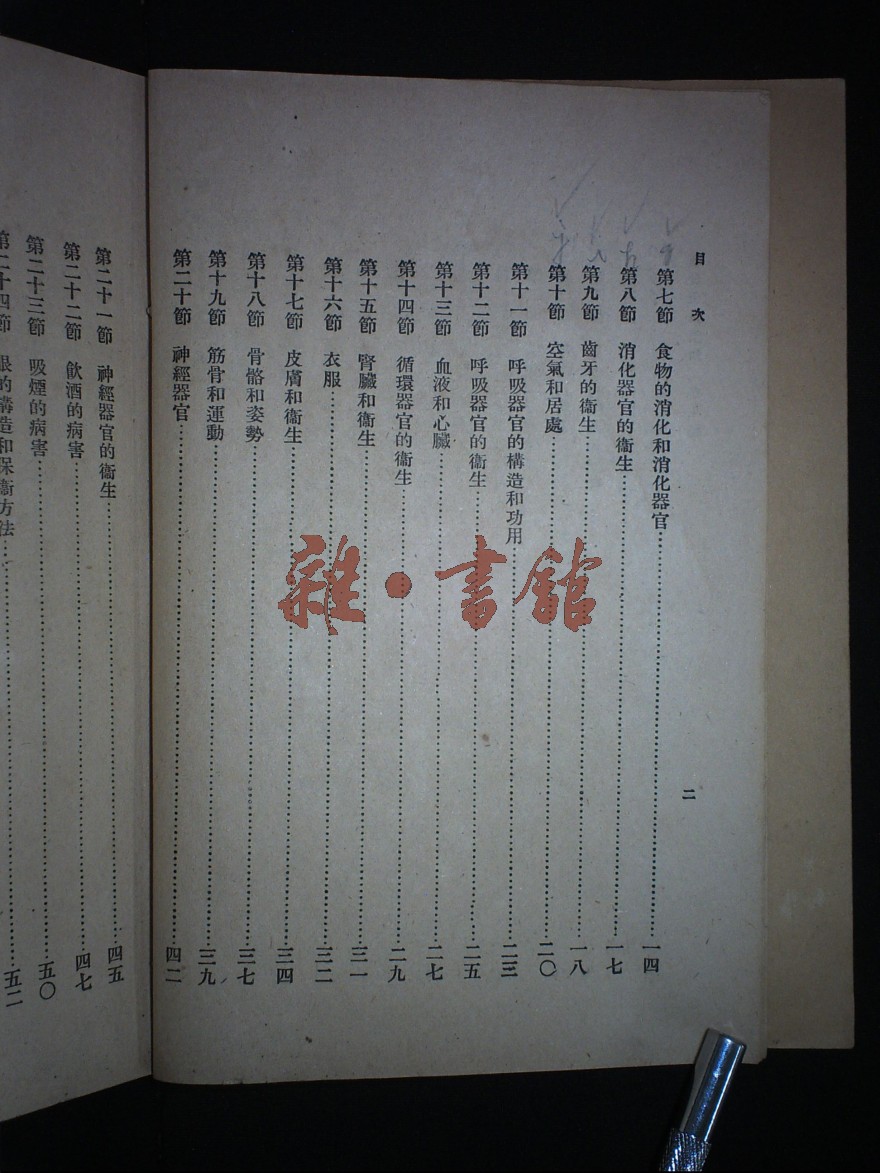 目次
二
第七節 食物的消化和消化器官……一四
第八節 消化器官的衞生……一七
第九節 齒牙的衞生……一八
第十節 空氣和居處……二〇
第十一節 呼吸器官的構造和功用……二三
第十二節 呼吸器官的衞生……二五
第十三節 血液和心臟……二七
第十四節 循環器官的衞生……二九
第十五節 腎臟和衞生……三一
第十六節 衣服……三二
第十七節 皮膚和衞生……三四
第十八節 骨骼和姿勢……三七
第十九節 筋骨和運動……三九
第二十節 神經器官……四二
第二十一節 神經器官的衞生……四五
第二十二節 飲酒的病害……四七
第二十三節 吸煙的病害……五〇
第二十四節 眼的構造和保衞方法……五二
雜·書館